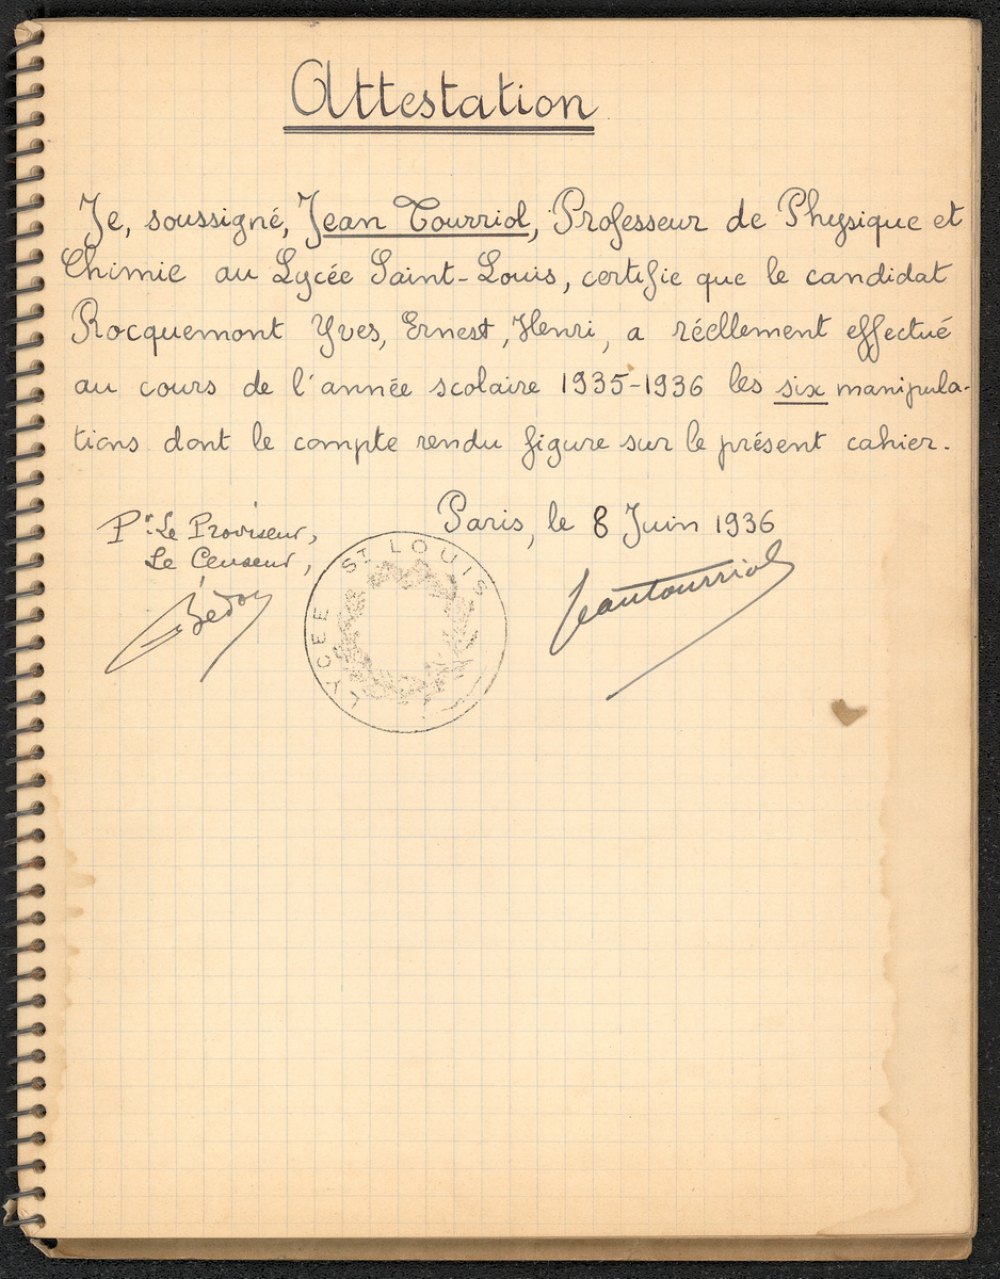 Attestation
Je, soussigné, Jean Tourriol, Professeur de Physique et
Chimie au Lycée Saint-Louis, certifie que le candidat
Rocquemont Yves, Ernest, Henri, a réellement effectué
au cours de l'année scolaire 1935-1936 les six manipula-
tions dont le compte rendu figure sur le présent cahier.
Paris, le 8 Juin 1936
Pr Le Proviseur,
Le Censeur,
LYCEE ST LOUIS
Jeantourriol